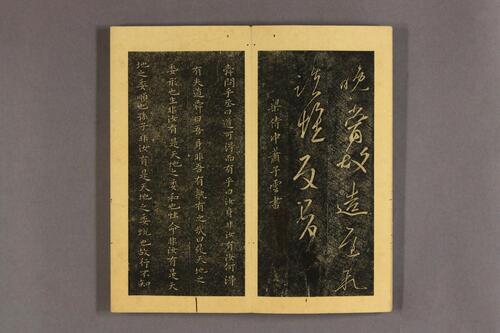 晚當故造
梁侍中蕭子雲書
舜問乎丞曰道可得而有乎曰汝身非汝有汝何得
有夫道舜曰吾身非吾有孰有之哉曰是天地之
委形也生非汝有是天地之委和也性命非汝有是天
地之委順也孫子非汝有是天地之委蛻也故行不知